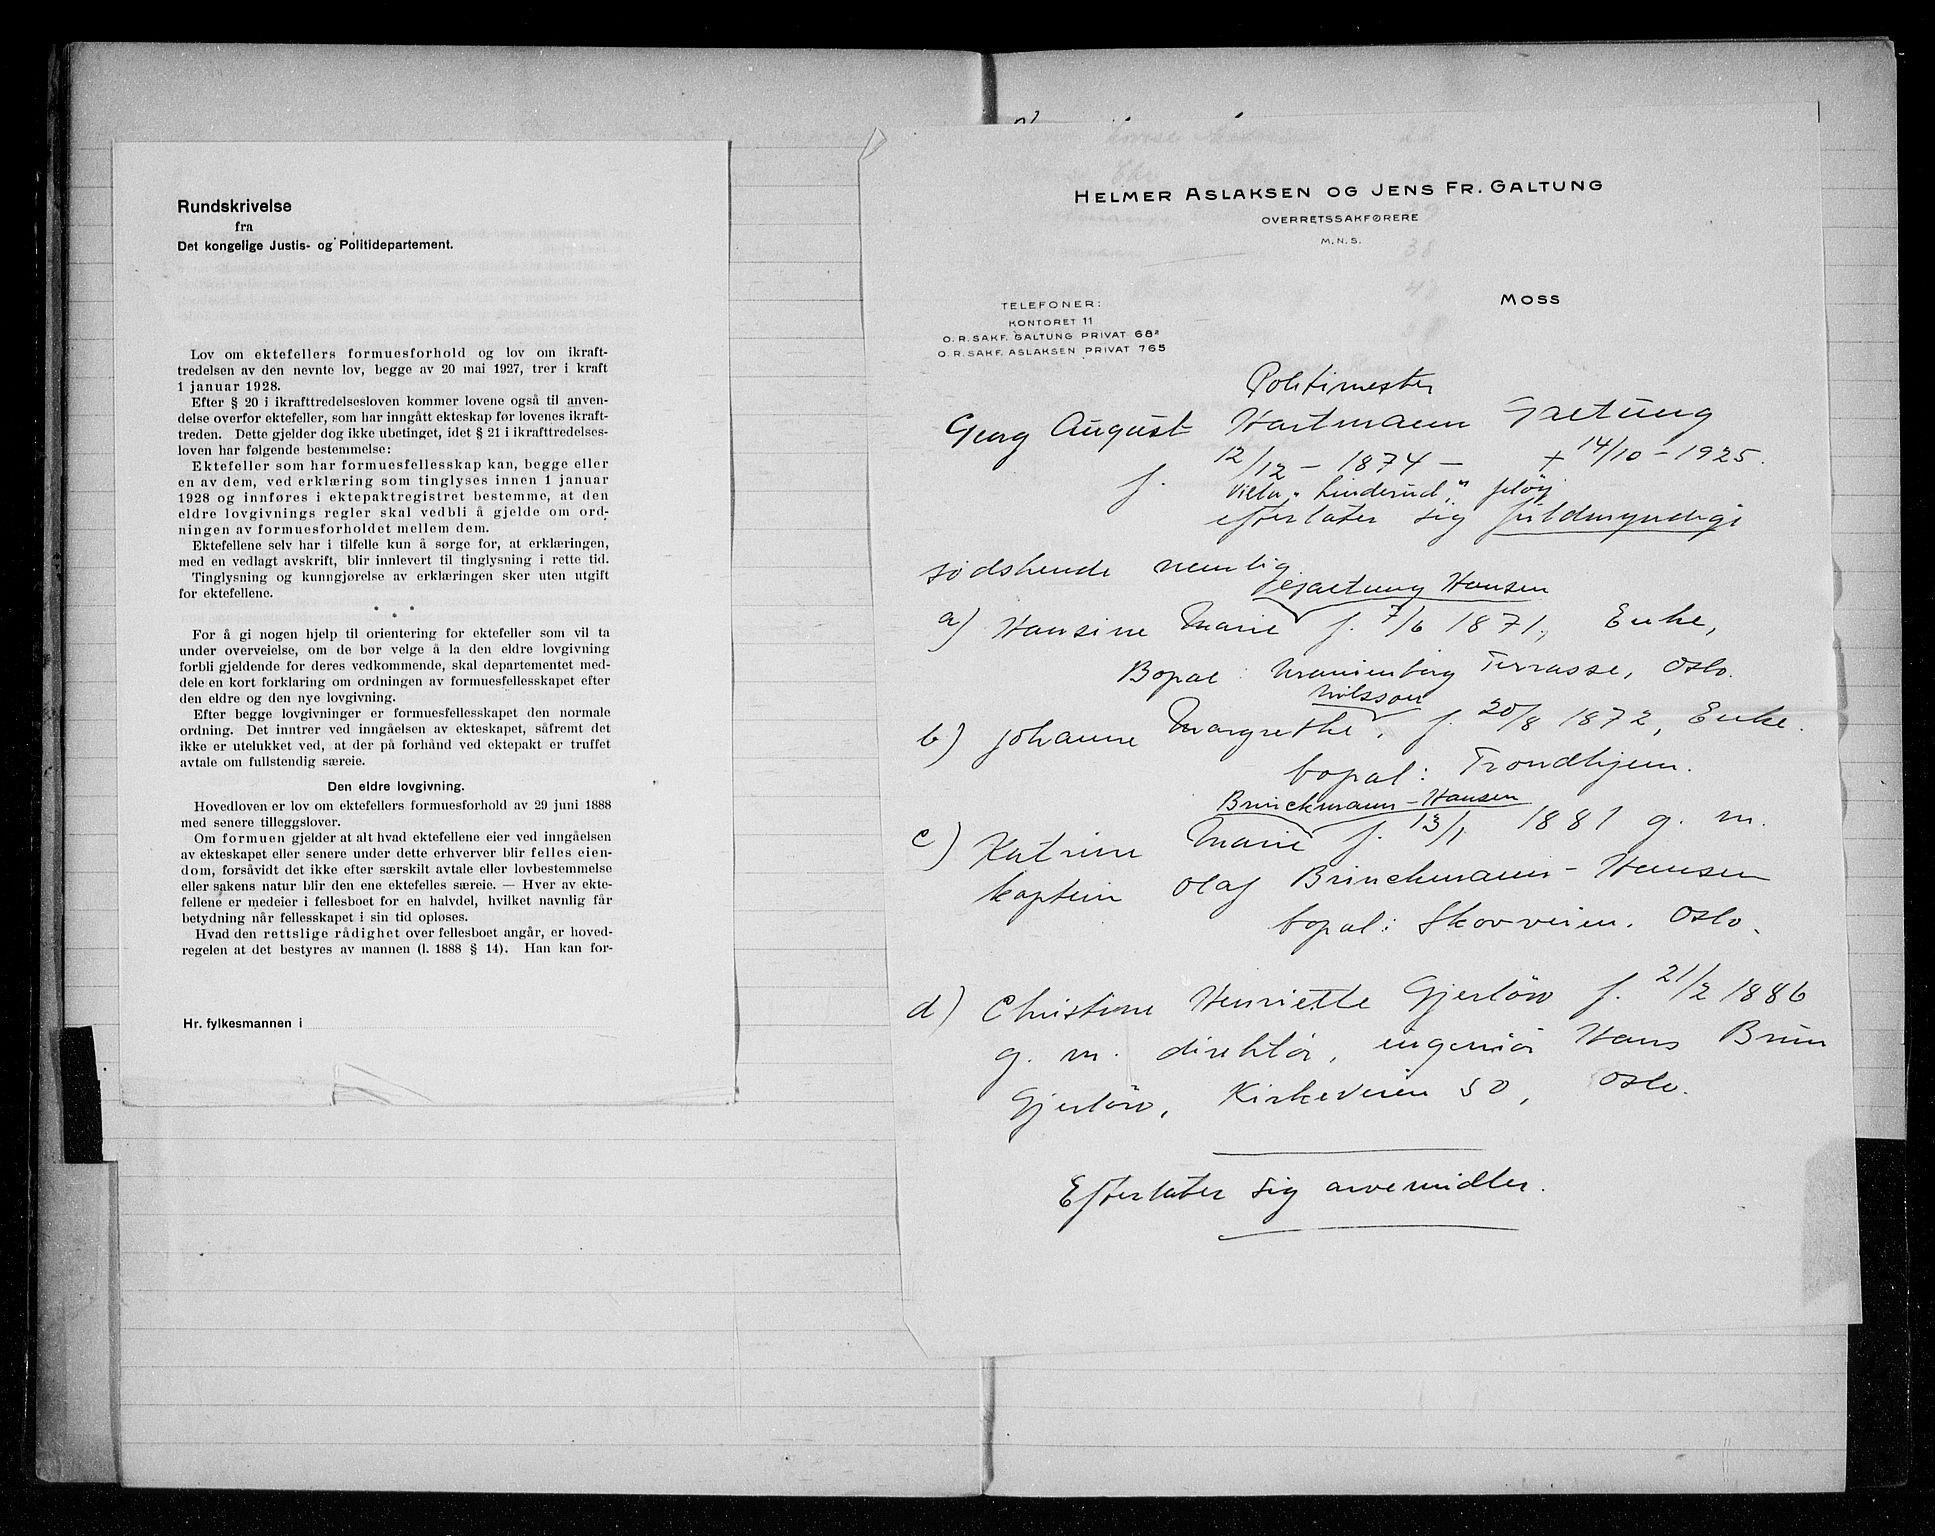 Rundskrivelse
fra
Det kongelige Justis- og Politidepartement.
Lov om ektefellers formuesforhold og lov om ikraft-
tredelsen av den nevnte lov, begge av 20 mai 1927, trer i kraft
1 januar 1928.
Efter § 20 i ikrafttredelsesloven kommer lovene også til anven-
delse overfor ektefeller, som har inngått ekteskap før lovenes ikraft-
treden. Dette gjelder dog ikke ubetinget, idet § 21 i ikrafttredelses-
loven har følgende bestemmelse:
Ektefeller som har formuesfellesskap kan, begge eller
en av dem, ved erklæring som tinglyses innen 1 januar
1928 og innføres i ektepaktregistret bestemme, at den
eldre lovgivnings regler skal vedbli å gjelde om ord-
ningen av formuesforholdet mellem dem.
Ektefellene selv har i tilfelle kun å sørge for, at erklæringen,
med en vedlagt avskrift, blir innlevert til tinglysning i rette tid.
Tinglysning og kunngjørelse av erklæringen sker uten utgift
for ektefellene.
For å gi nogen hjelp til orientering for ektefeller som vil ta
under overveielse, om de bør velge å la den eldre lovgivning
forbli gjeldende for deres vedkommende, skal departementet med-
dele en kort forklaring om ordningen av formuesfellesskapet efter
den eldre og den nye lovgivning.
Efter begge lovgivninger er formuesfellesskapet den normale
ordning. Det inntrer ved inngåelsen av ekteskapet, såfremt det
ikke er utelukket ved, at der på forhånd ved ektepakt er truffet
avtale om fullstendig særeie.
Den eldre lovgivning.
Hovedloven er lov om ektefellers formuesforhold av 29 juni 1888
med senere tilleggslover.
Om formuen gjelder at alt hvad ektefellene eier ved inngåelsen
av ekteskapet eller senere under dette erhverver blir felles eien-
dom, forsåvidt det ikke efter særskilt avtale eller lovbestemmelse
eller sakens natur blir den ene ektefelles særeie. — Hver av ekte-
fellene er medeier i fellesboet for en halvdel, hvilket navnlig får
betydning når fellesskapet i sin tid opløses.
Hvad den rettslige rådighet over fellesboet angår, er hoved-
regelen at det bestyres av mannen (l. 1888 § 14). Han kan for-
Hr. fylkesmannen i
HELMER ASLAKSEN OG JENS FR. GALTUNG
OVERRETSSAKFØRERE
M.N.S.
MOSS
TELEFONER:
KONTORET 11
O.R.SAKF. GALTUNG PRIVAT 68²
O.R.SAKF. ASLAKSEN PRIVAT 765
Politimester
Georg August Hartmann Gjetung
f. 12/12 – 1874 – + 14/10 – 1925.
Villa "Linderud", Jeløy
efterlater sig fuldmyndige
sødskende nemlig
Gjetung Hansen
a) Hansine Marie f. 7/6 1871, Enke,
Bopæl: Uranienborg Terrasse, Oslo.
Nilsson
b) Johanne Margrethe, f. 20/8 1872, Enke.
bopæl: Trondhjem.
Brinckmann-Hansen
c) Katrine Marie f. 13/1 1881 g. m.
kaptein Olaf Brinckmann-Hansen
bopæl: Skovveien. Oslo.
d) Christine Henriette Gjerløw f. 21/2 1886
g. m. direktør, ingeniør Hans Brun
Gjerløw, Kirkeveien 50, Oslo.
Efterlater sig arvemidler.